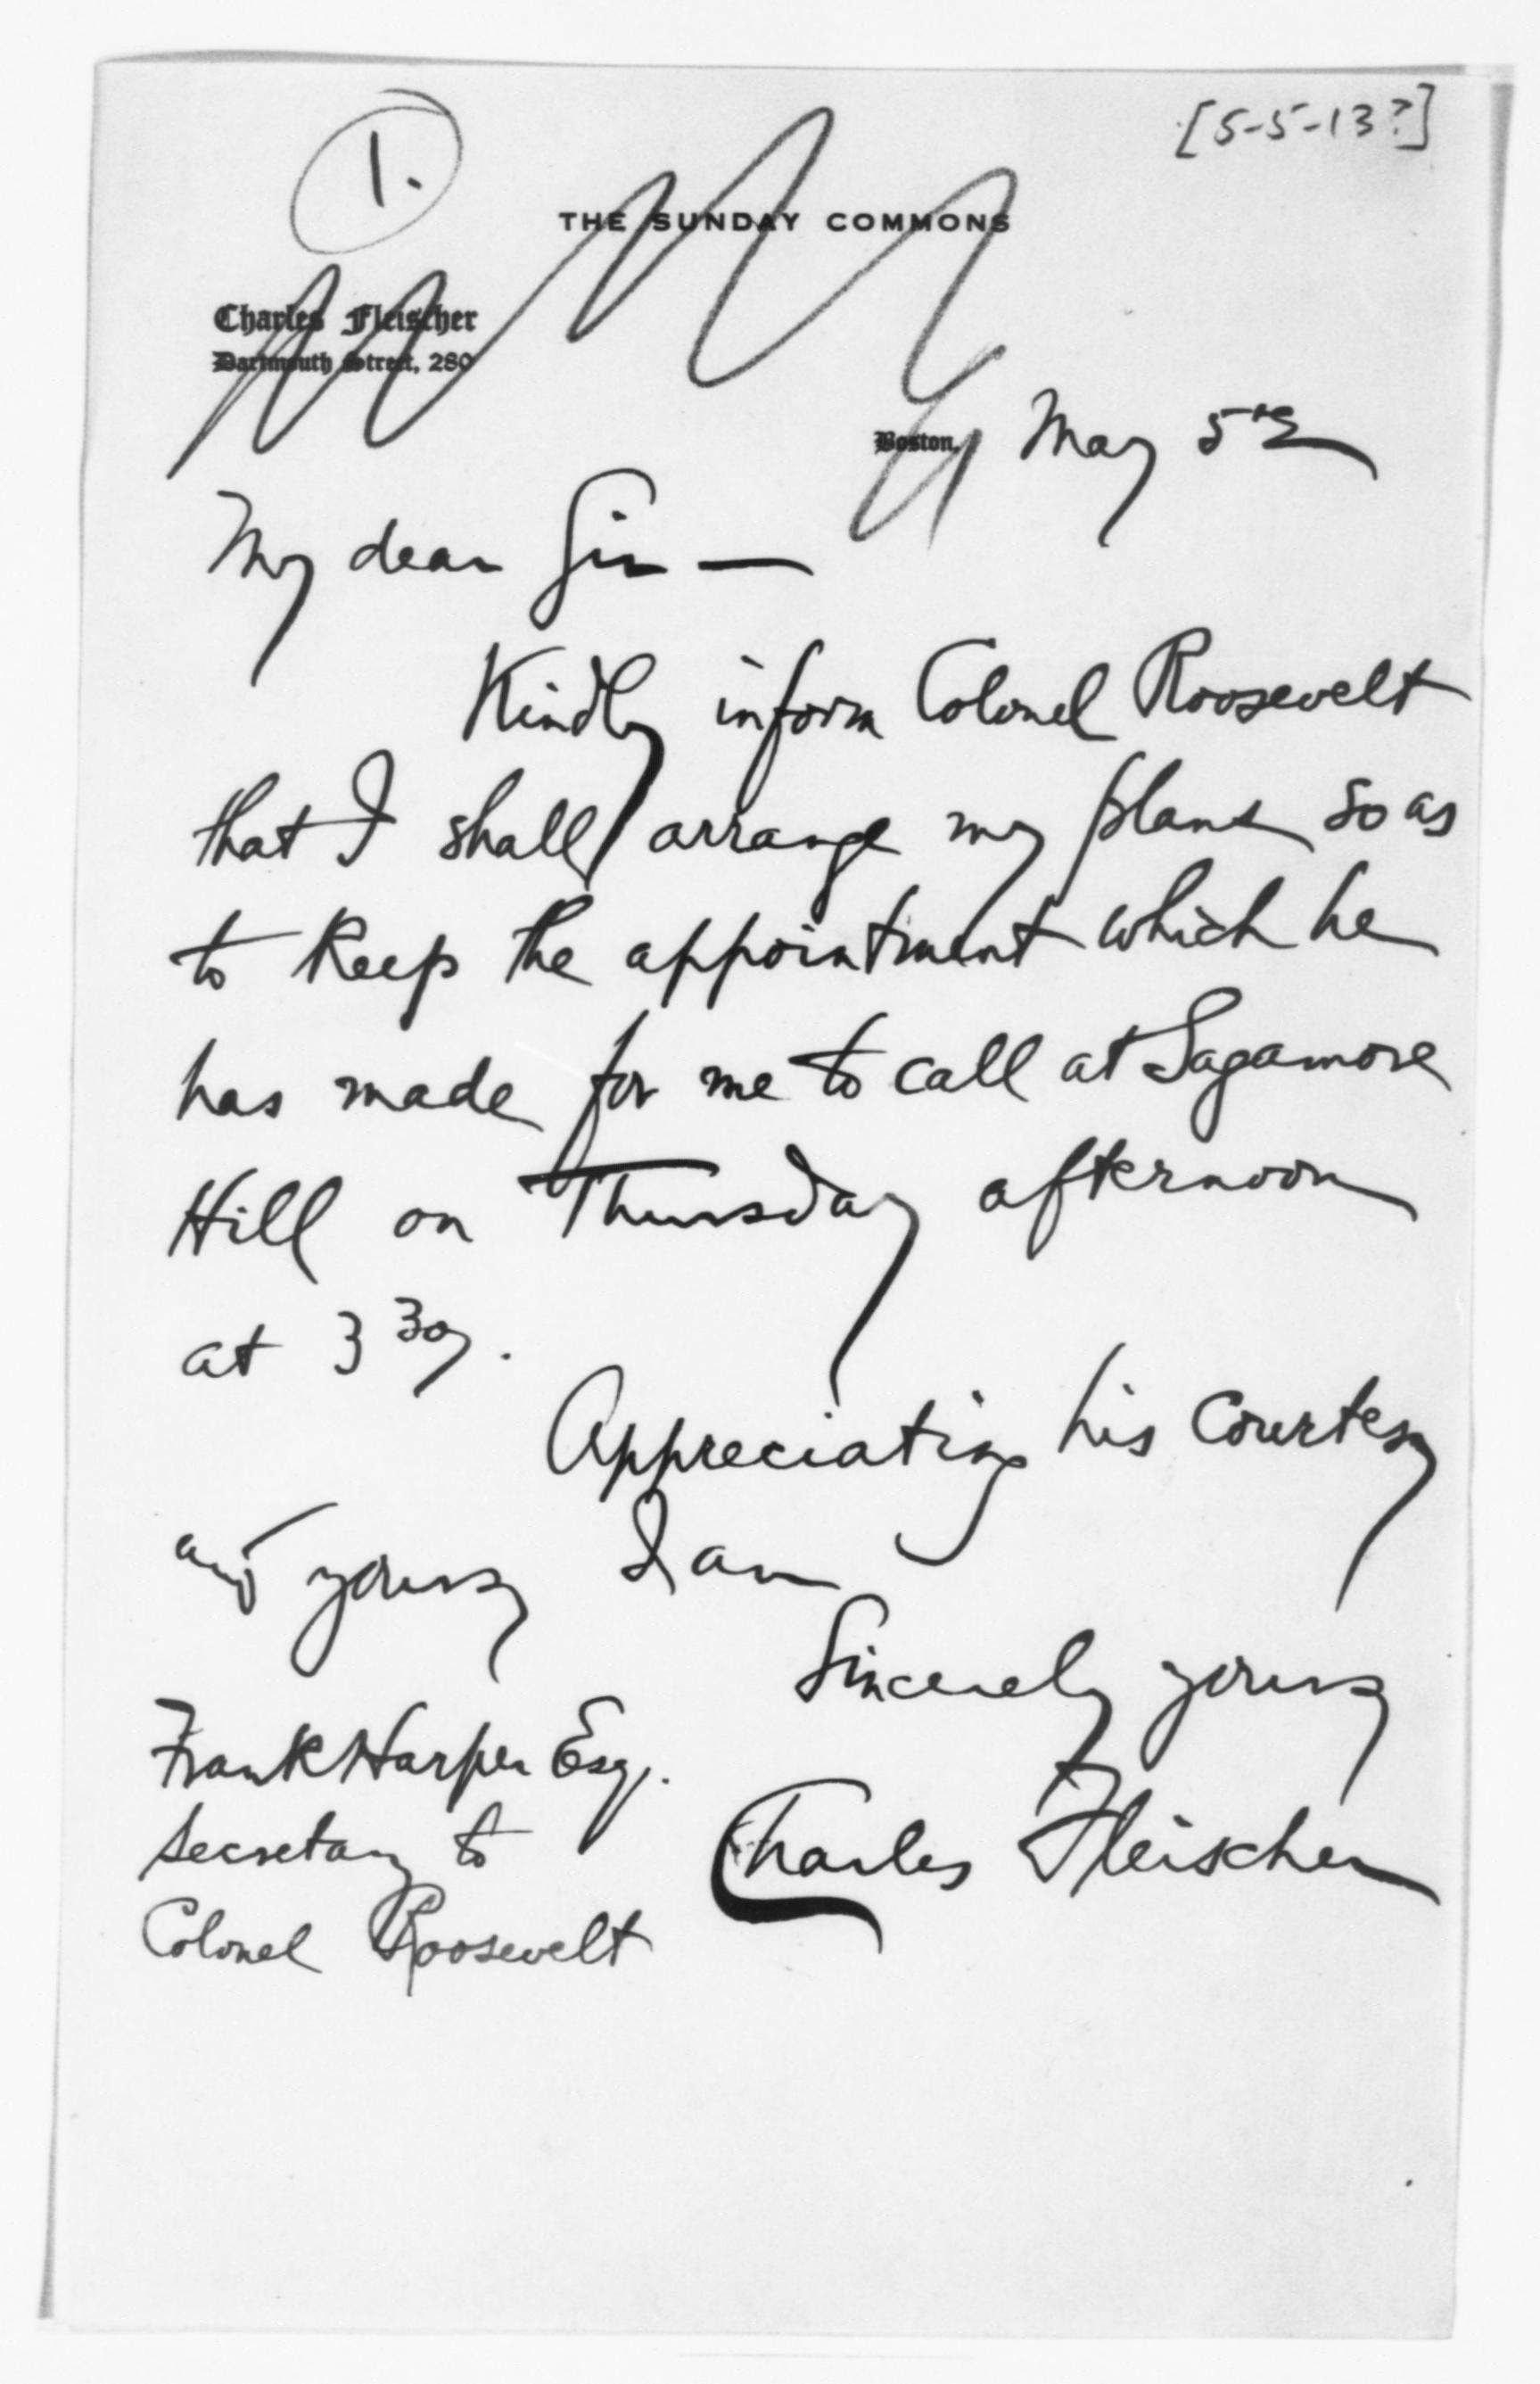 1.
[5-5-13?]
THE SUNDAY COMMONS
Charles Fleischer
Dartmouth Street, 280
Boston, May 5th
My dear Sir —
Kindly inform Colonel Roosevelt
that I shall arrange my plans so as
to keep the appointment which he
has made for me to call at Sagamore
Hill on Thursday afternoon
at 3 30.
Appreciating his courtesy
and yours, I am
Sincerely yours,
Charles Fleischer
Frank Harper Esq.
Secretary to
Colonel Roosevelt